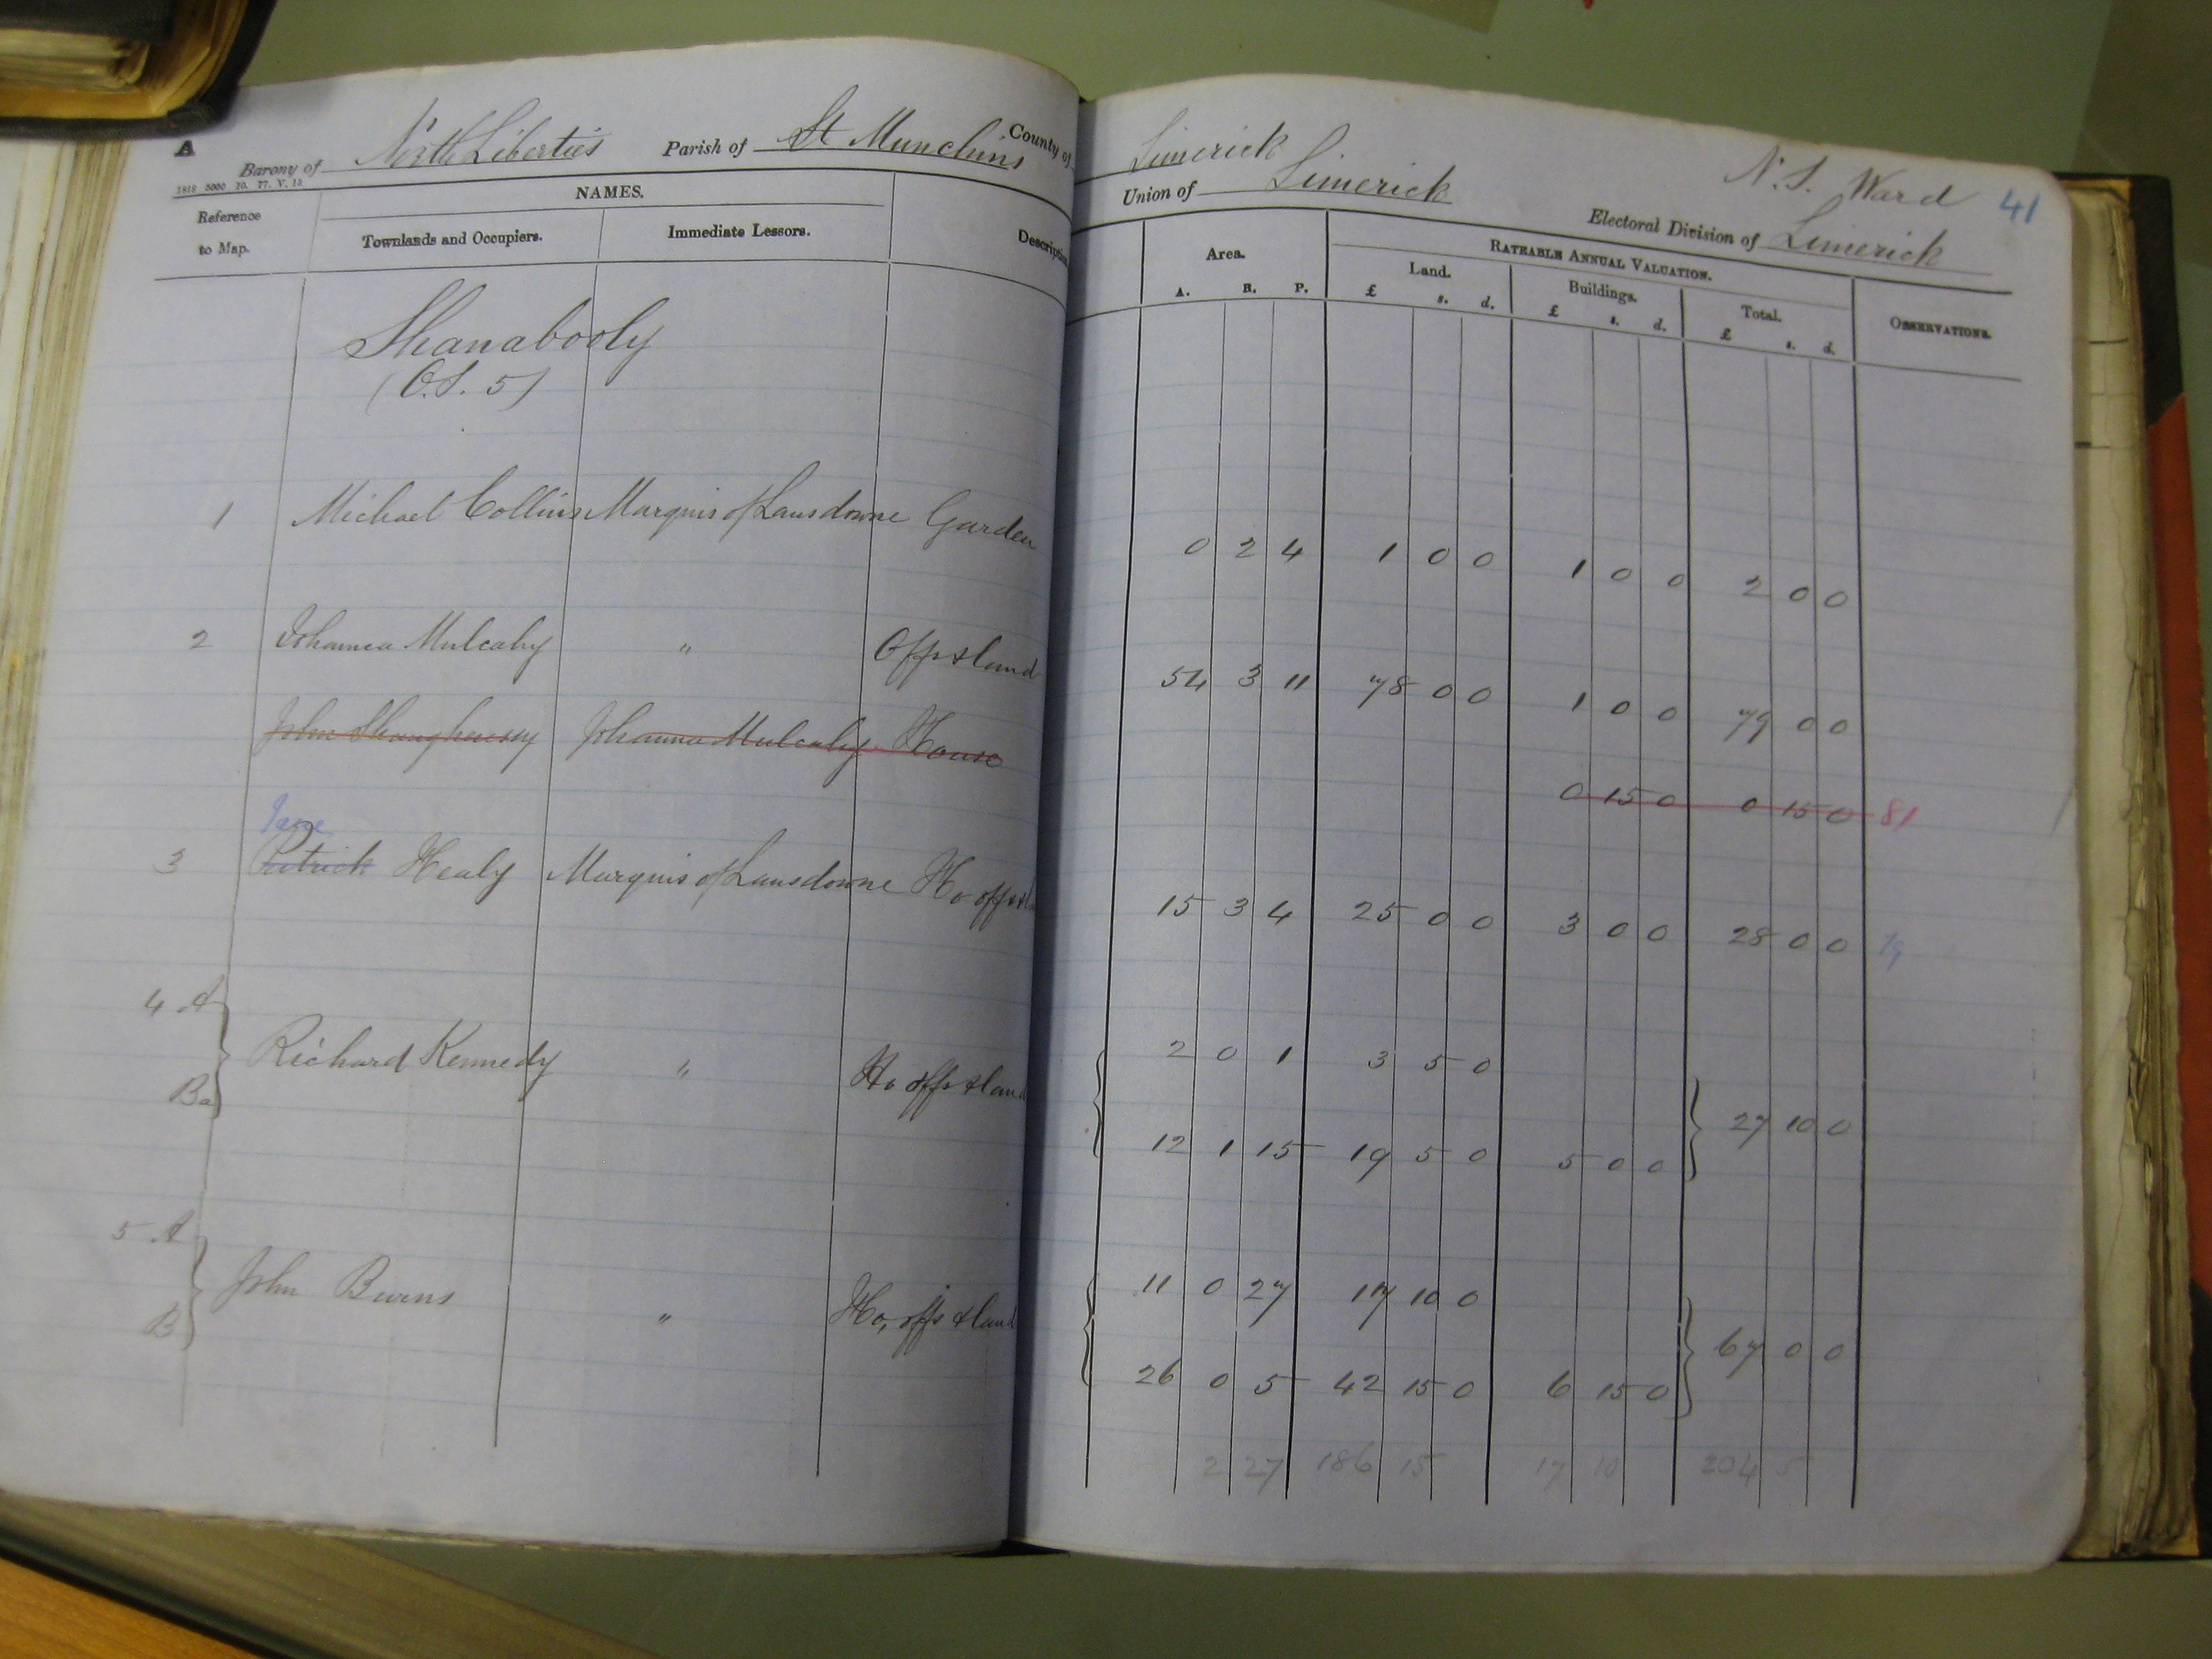 A Barony of North Liberties Parish of St Munchins County of Limerick N.S. Ward 41
1818 5000 10. 77. V. 13
Union of Limerick Electoral Division of Limerick
Reference to Map. NAMES. Description Area. RATEABLE ANNUAL VALUATION. OBSERVATIONS.
Townlands and Occupiers. Immediate Lessors. A. R. P. Land. £ s. d. Buildings. £ s. d. Total. £ s. d.
Shanabooly
(O.S. 5)
1 Michael Collins Marquis of Lansdowne Garden 0 2 4 1 0 0 1 0 0 2 0 0
2 Johanna Mulcahy " Offs & land 54 3 11 78 0 0 1 0 0 79 0 0
John Shaughnessy Johanna Mulcahy House 0 15 0 0 15 0 81
Jane
3 Patrick Healy Marquis of Lansdowne Ho offs & l 15 3 4 25 0 0 3 0 0 28 0 0 79
4 A 2 0 1 3 5 0
Richard Kennedy " Ho offs & land 27 10 0
Ba 12 1 15 19 5 0 5 0 0
5 A 11 0 27 17 10 0
John Burns " Ho, offs & land 67 0 0
B 26 0 5 42 15 0 6 15 0
2 27 186 15 17 10 204 5